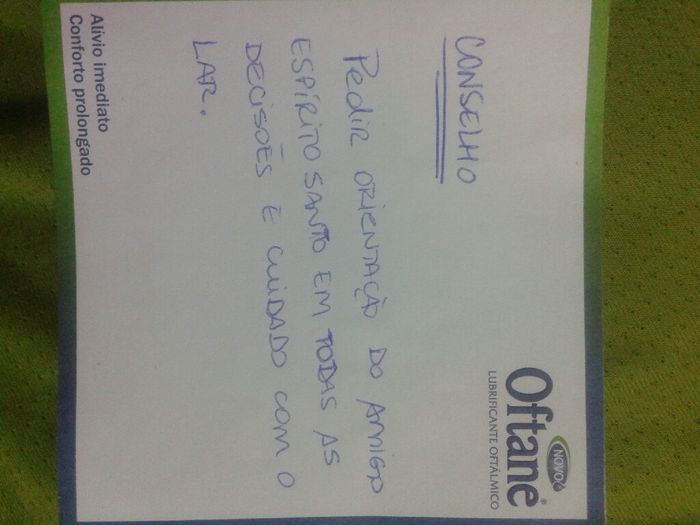 NOVO
Oftane®
LUBRIFICANTE OFTÁLMICO
CONSELHO
Pedir ORIENTAÇÃO DO AMIGO
ESPÍRITO SANTO EM TODAS AS
DECISÕES E CUIDADO COM O
LAR.
Alivio imediato
Conforto prolongado